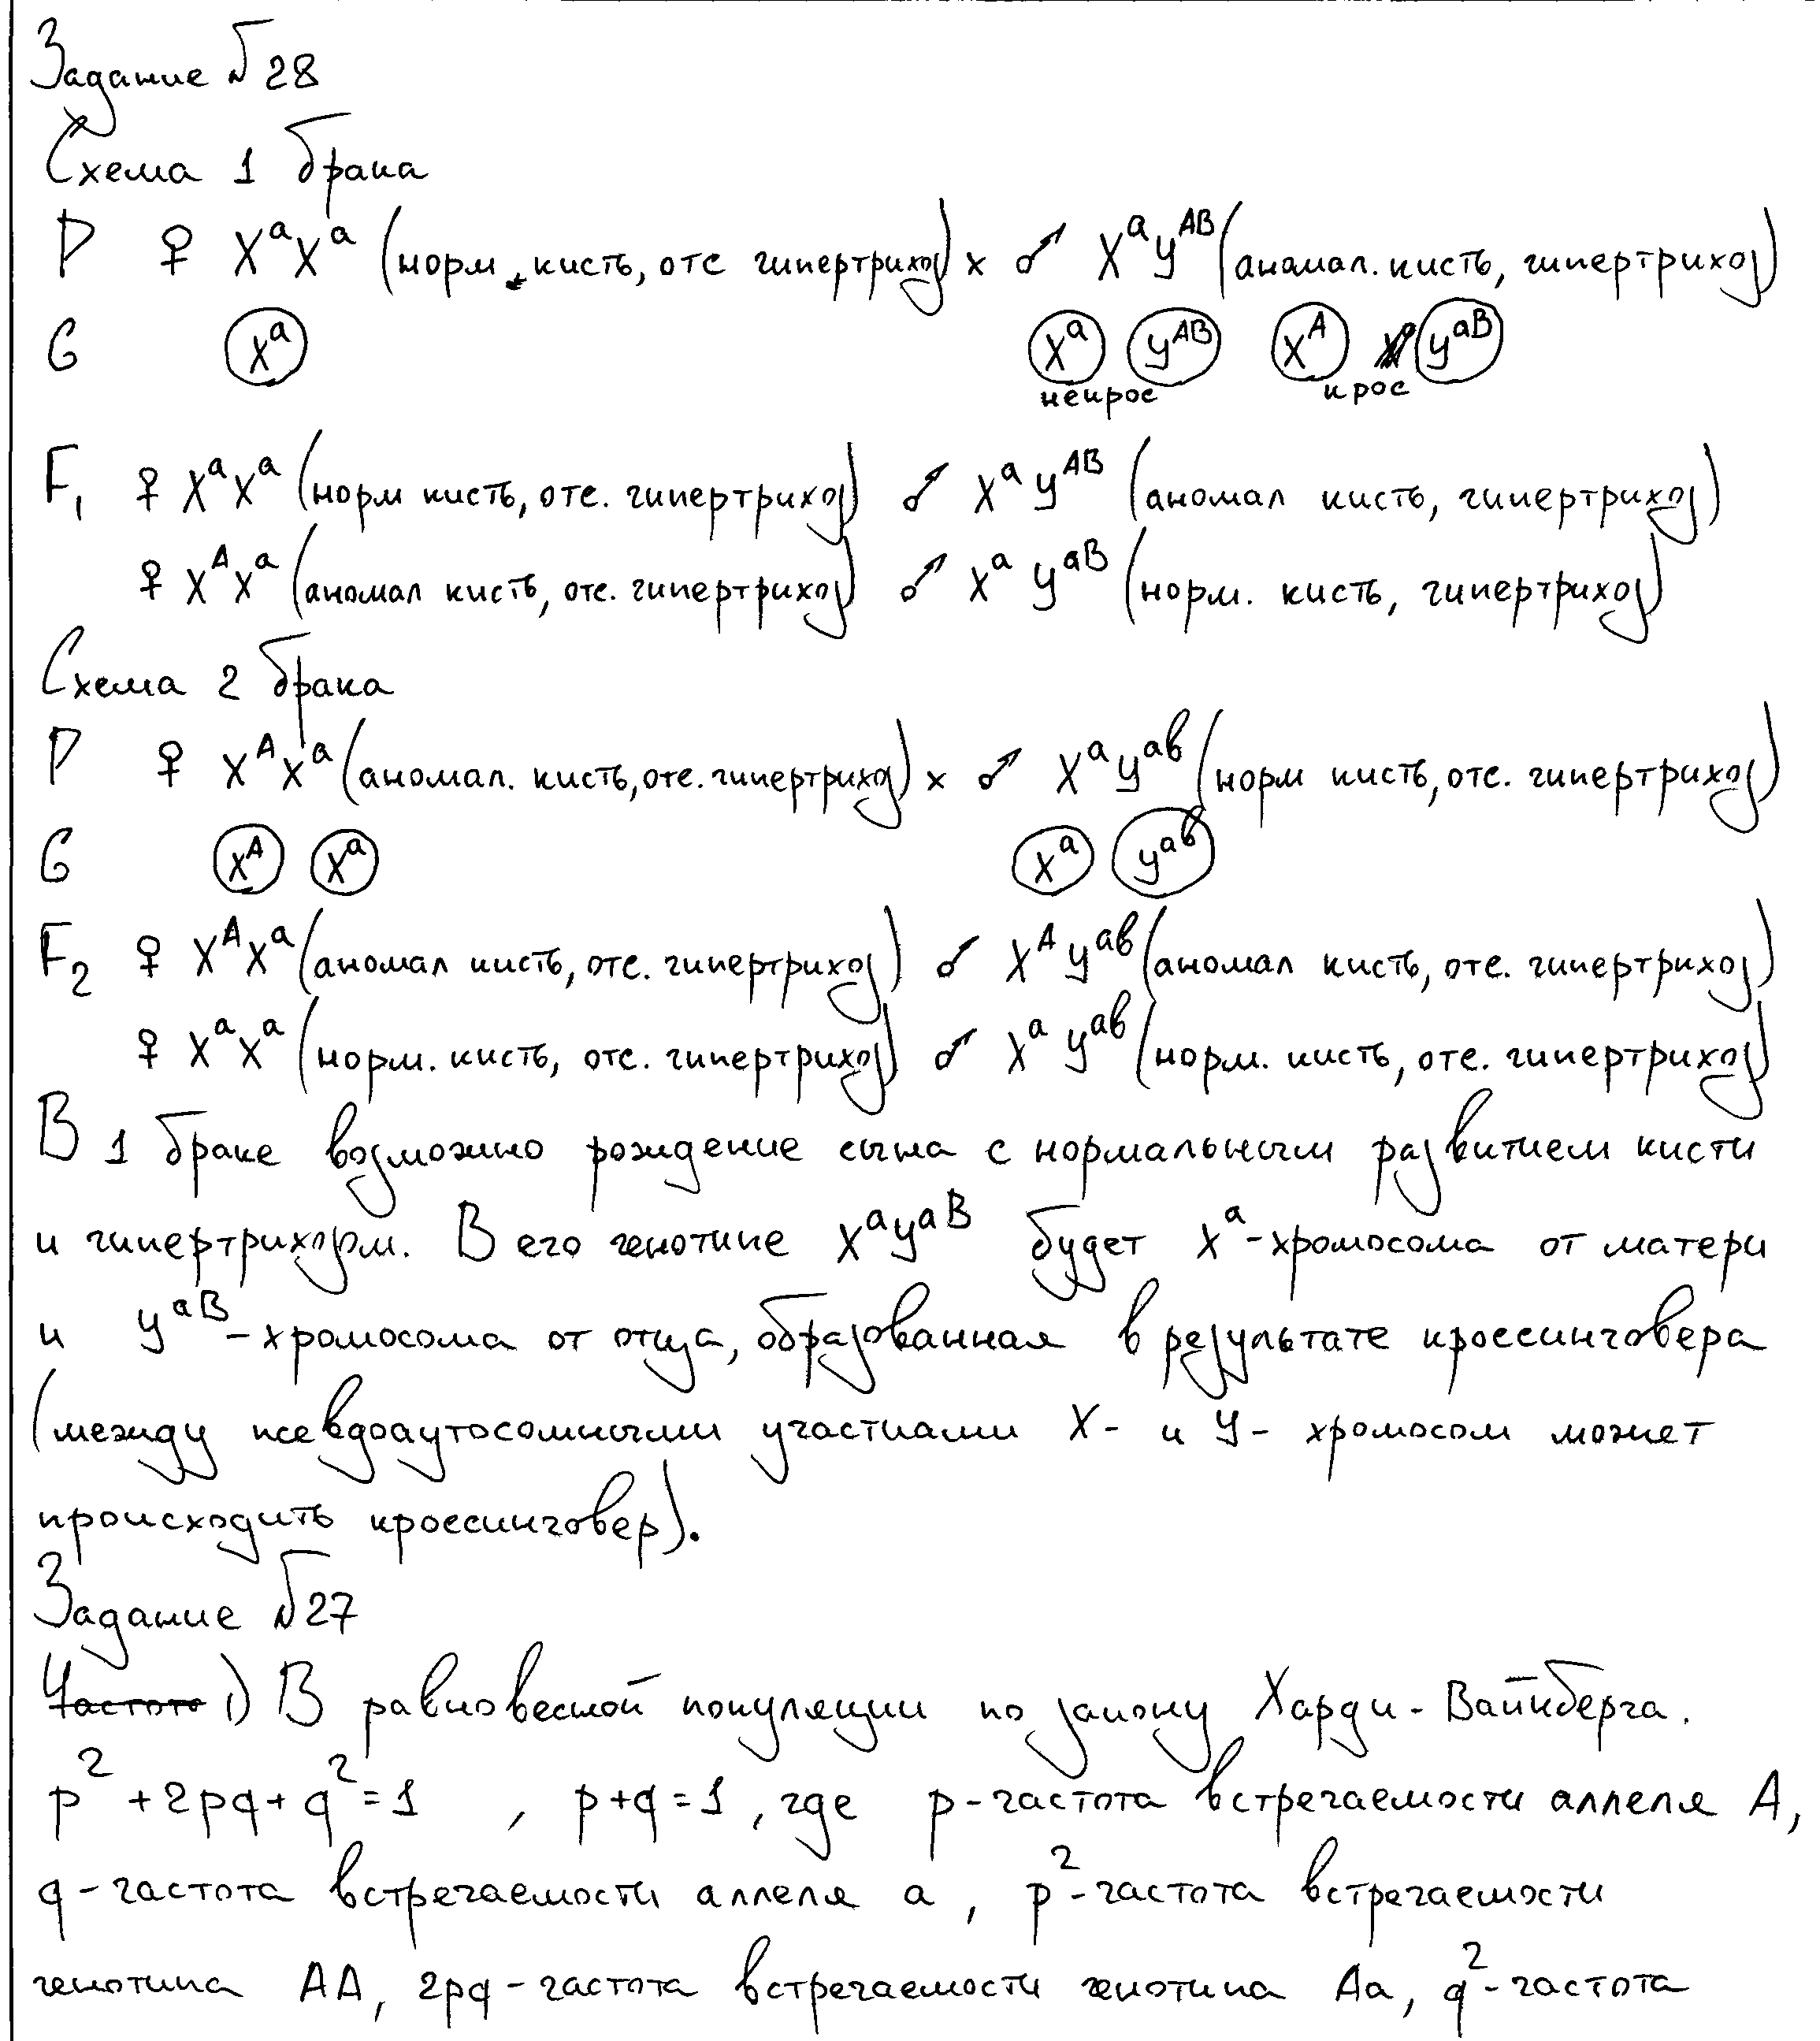 Задание №28
Схема 1 брака
P ♀ XᵃXᵃ (норм. кисть, отс гипертрихоз) x ♂ XᵃYᴬᴮ (аномал. кисть, гипертрихоз)
G Xᵃ Xᵃ Yᴬᴮ Xᴬ Yᵃᴮ
некрос крос
F₁ ♀ XᵃXᵃ (норм кисть, отс. гипертрихоз) ♂ XᵃYᴬᴮ (аномал кисть, гипертрихоз)
♀ XᴬXᵃ (аномал кисть, отс. гипертрихоз) ♂ XᵃYᵃᴮ (норм. кисть, гипертрихоз)
Схема 2 брака
P ♀ XᴬXᵃ (аномал. кисть, отс. гипертрихоз) x ♂ XᵃYᵃᵇ (норм кисть, отс. гипертрихоз)
G Xᴬ Xᵃ Xᵃ Yᵃᵇ
F₂ ♀ XᴬXᵃ (аномал кисть, отс. гипертрихоз) ♂ XᴬYᵃᵇ (аномал кисть, отс. гипертрихоз)
♀ XᵃXᵃ (норм. кисть, отс. гипертрихоз) ♂ XᵃYᵃᵇ (норм. кисть, отс. гипертрихоз)
В 1 браке возможно рождение сына с нормальным развитием кисти
и гипертрихозом. В его генотипе XᵃYᵃᴮ будет Xᵃ-хромосома от матери
и Yᵃᴮ-хромосома от отца, образованная в результате кроссинговера
(между псевдоаутосомными участками X- и Y- хромосом может
происходить кроссинговер).
Задание №27
Частота 1) В равновесной популяции по закону Харди-Вайнберга.
p² + 2pq + q² = 1 , p+q = 1 , где p - частота встречаемости аллеля A,
q - частота встречаемости аллеля a , p² - частота встречаемости
генотипа AA, 2pq - частота встречаемости генотипа Aa, q² - частота